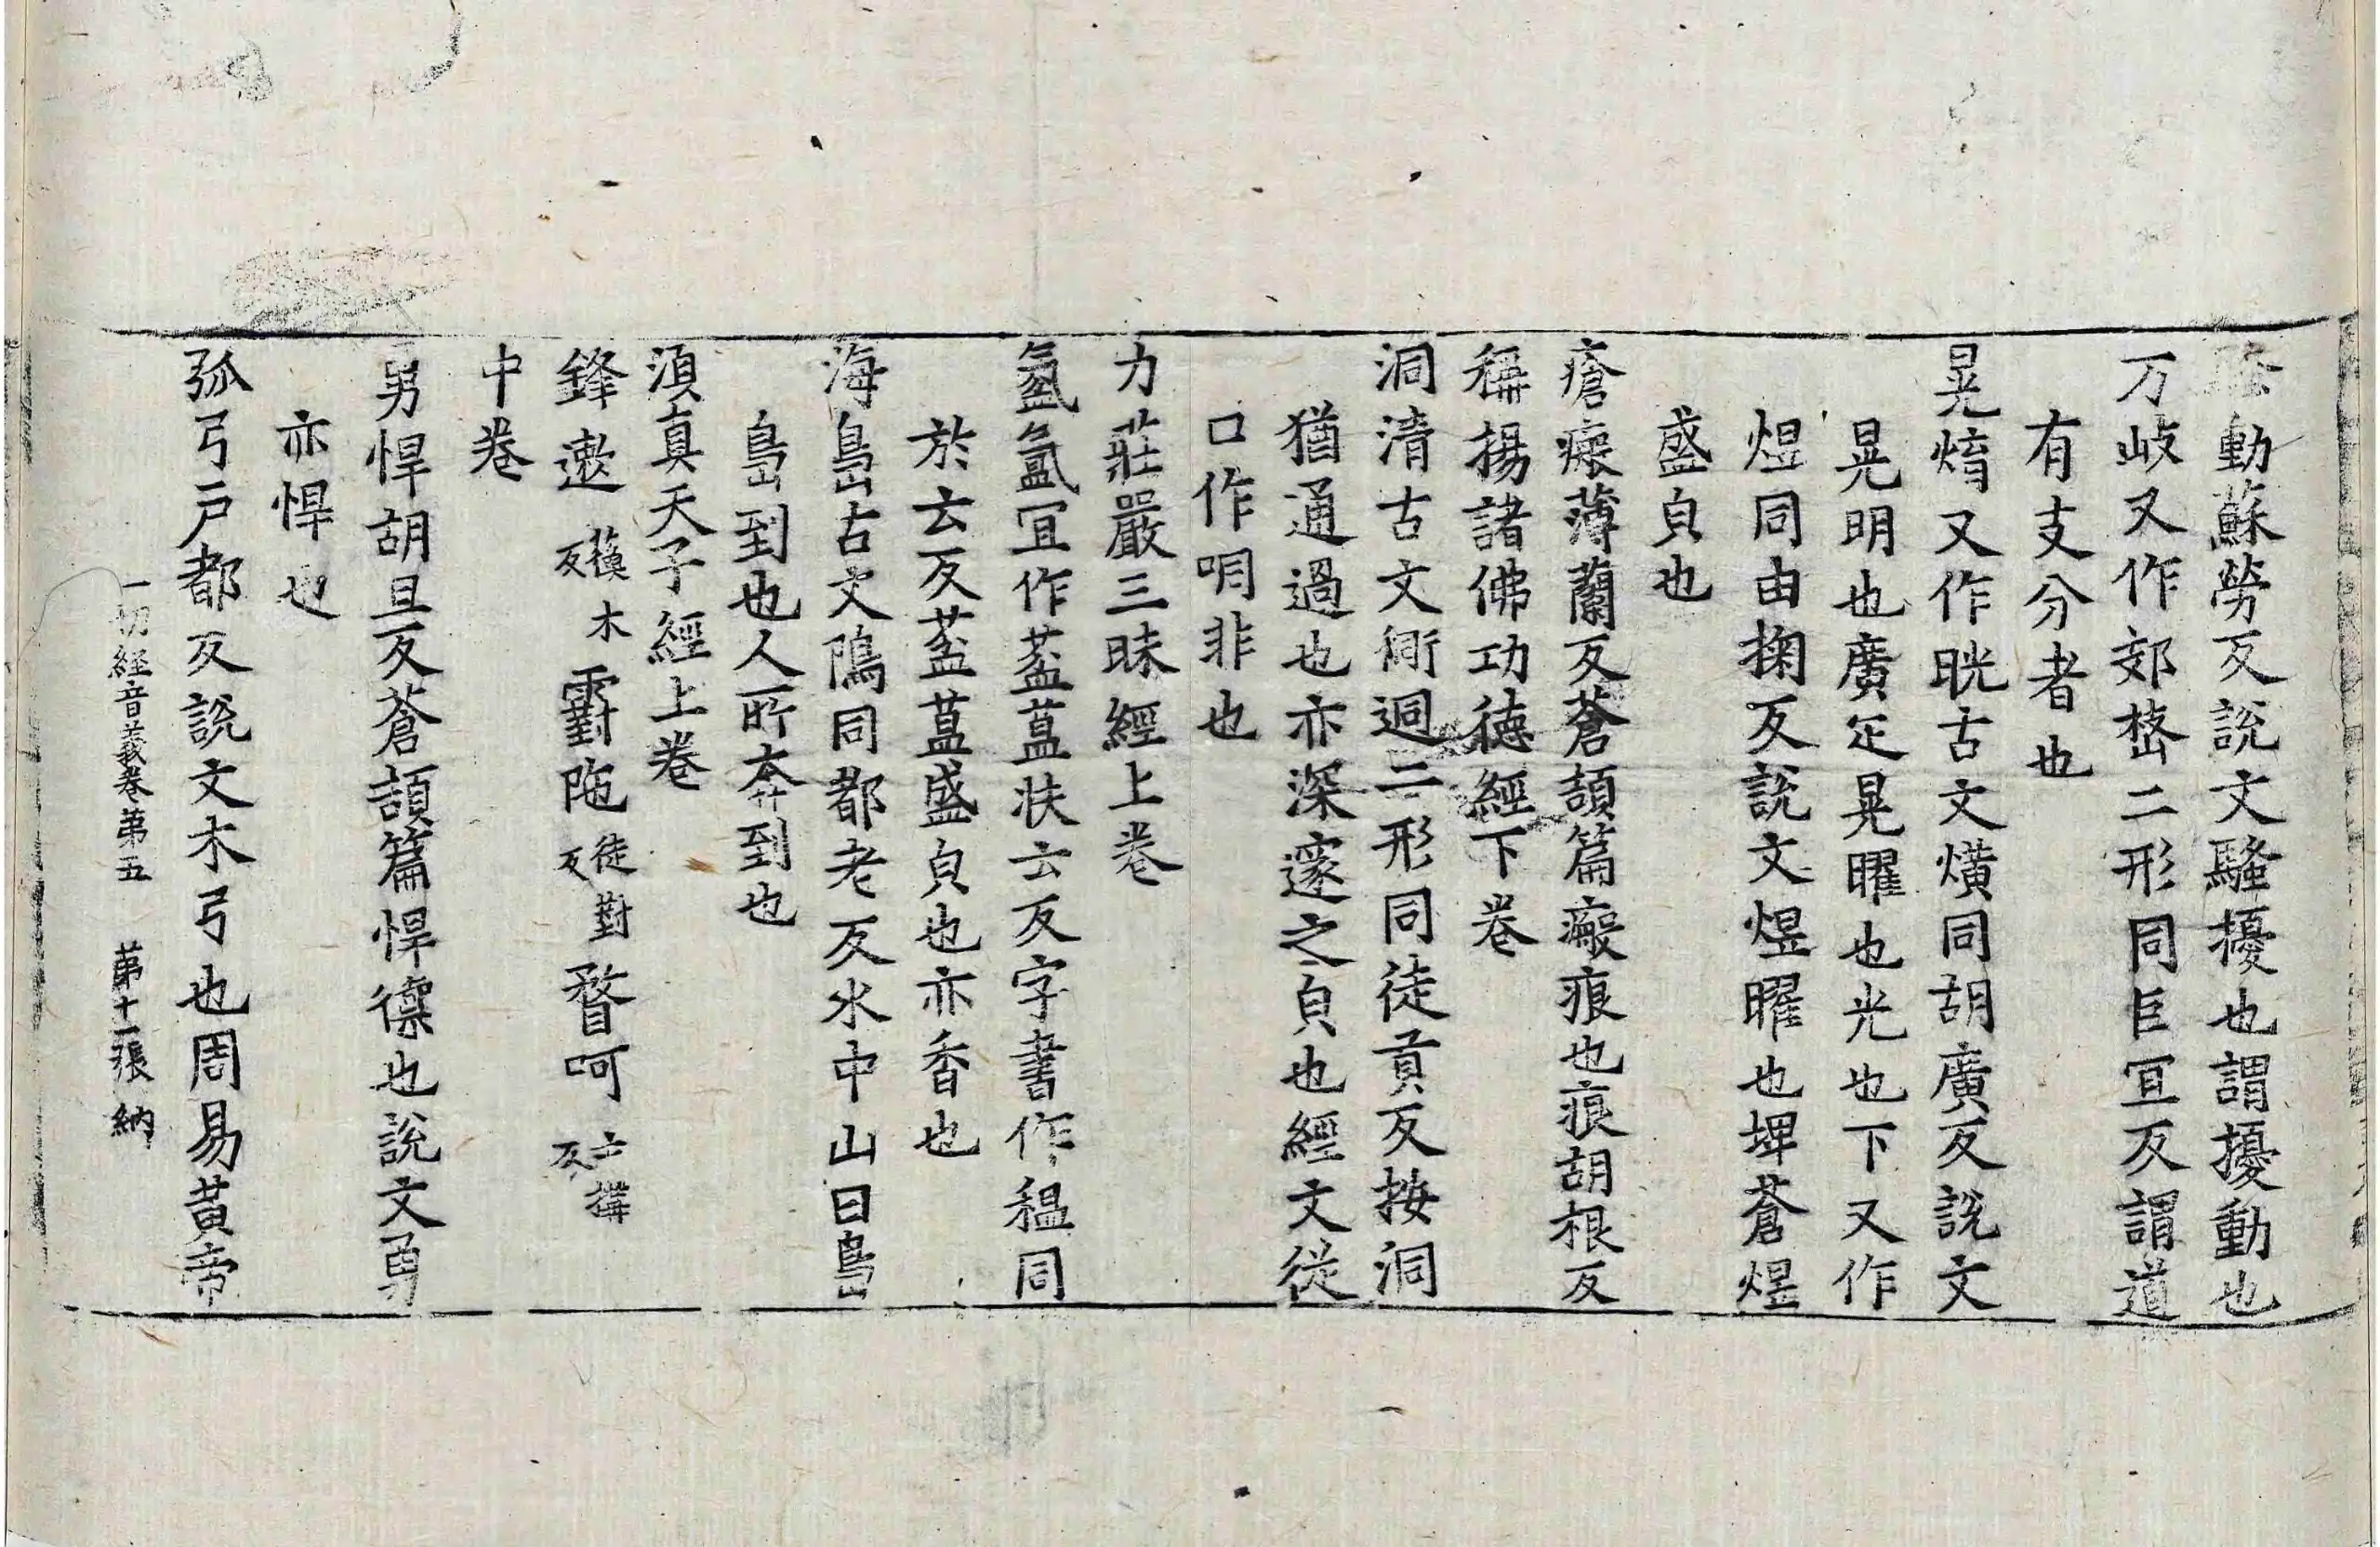 動蘇勞反說文騷擾也謂擾動也
万岐又作郊嵍二形同巨冝反謂道
有支分者也
晃焴又作晄古文熿同胡廣反說文
晃明也廣疋晃曜也光也下又作
煜同由掬反說文煜曜也埤蒼煜
盛皃也
瘡瘢薄蘭反蒼頡篇瘢痕也痕胡根反
稱揚諸佛功德經下卷
洞清古文衕迵二形同徒貢反按洞
猶通過也亦深邃之皃也經文從
口作哃非也
力莊嚴三昧經上卷
氳氳冝作葐蒀扶云反字書作䅰同
於云反葐蒀盛皃也亦香也
海島古文隝同都老反水中山曰島
島到也人所奔到也
湏真天子經上卷
鋒遬 蘓木反 霴陁 徒對反 瞀呵 亡搆反
中卷
勇悍胡旦反蒼頡篇悍㯲也說文勇
亦悍也
弧弓戶都反說文木弓也周易黃帝
一切経音義卷第五 第十一張 納